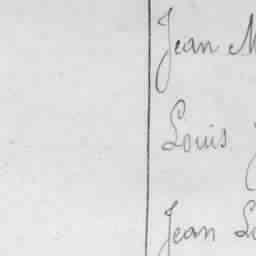 Jean M
Louis J
Jean Lo